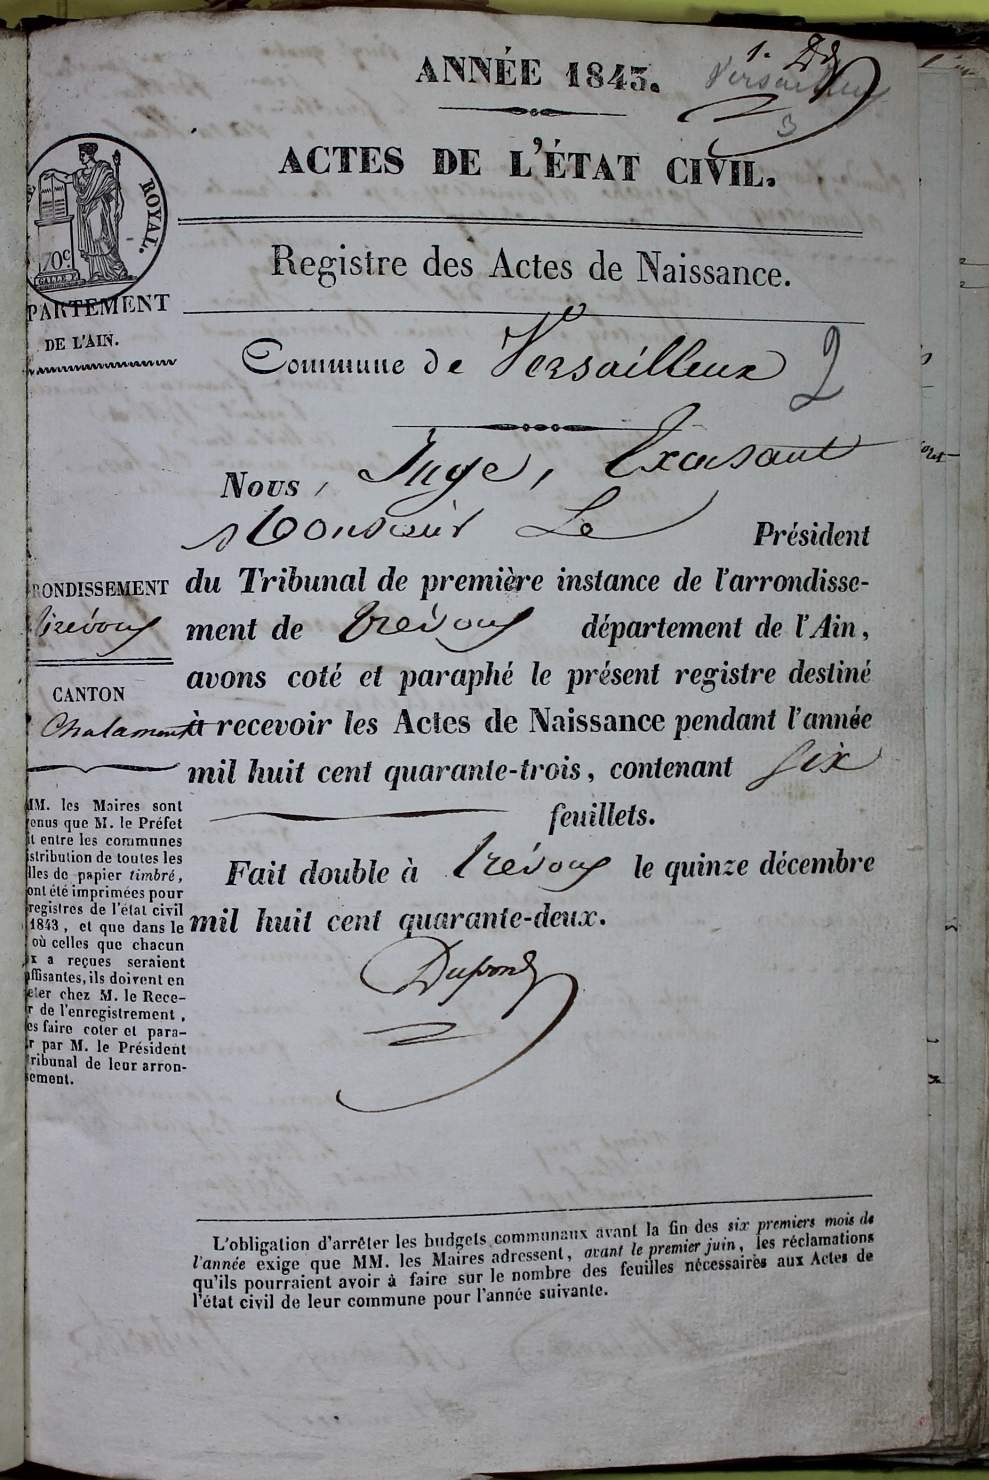 ANNÉE 1843.
1.
Versailleux
3
ACTES DE L'ÉTAT CIVIL.
ROYAL.
70c
GALLE F.
Registre des Actes de Naissance.
PARTEMENT
DE L'AIN.
Commune de Versailleux
2
Nous, Juge, Excusant
Monsieur Le Président
du Tribunal de première instance de l'arrondisse-
RONDISSEMENT
Trévoux
ment de Trévoux département de l'Ain,
avons coté et paraphé le présent registre destiné
CANTON
Chalamont
à recevoir les Actes de Naissance pendant l'année
mil huit cent quarante-trois, contenant six
feuillets.
Fait double à Trévoux le quinze décembre
mil huit cent quarante-deux.
Dupond
MM. les Maires sont
enus que M. le Préfet
it entre les communes
stribution de toutes les
lles de papier timbré,
ont été imprimées pour
registres de l'état civil
1843, et que dans le
où celles que chacun
x a reçues seraient
ffisantes, ils doivent en
eter chez M. le Rece-
r de l'enregistrement,
es faire coter et para-
r par M. le Président
ribunal de leur arron-
sement.
L'obligation d'arrêter les budgets communaux avant la fin des six premiers mois de
l'année exige que MM. les Maires adressent, avant le premier juin, les réclamations
qu'ils pourraient avoir à faire sur le nombre des feuilles nécessaires aux Actes de
l'état civil de leur commune pour l'année suivante.